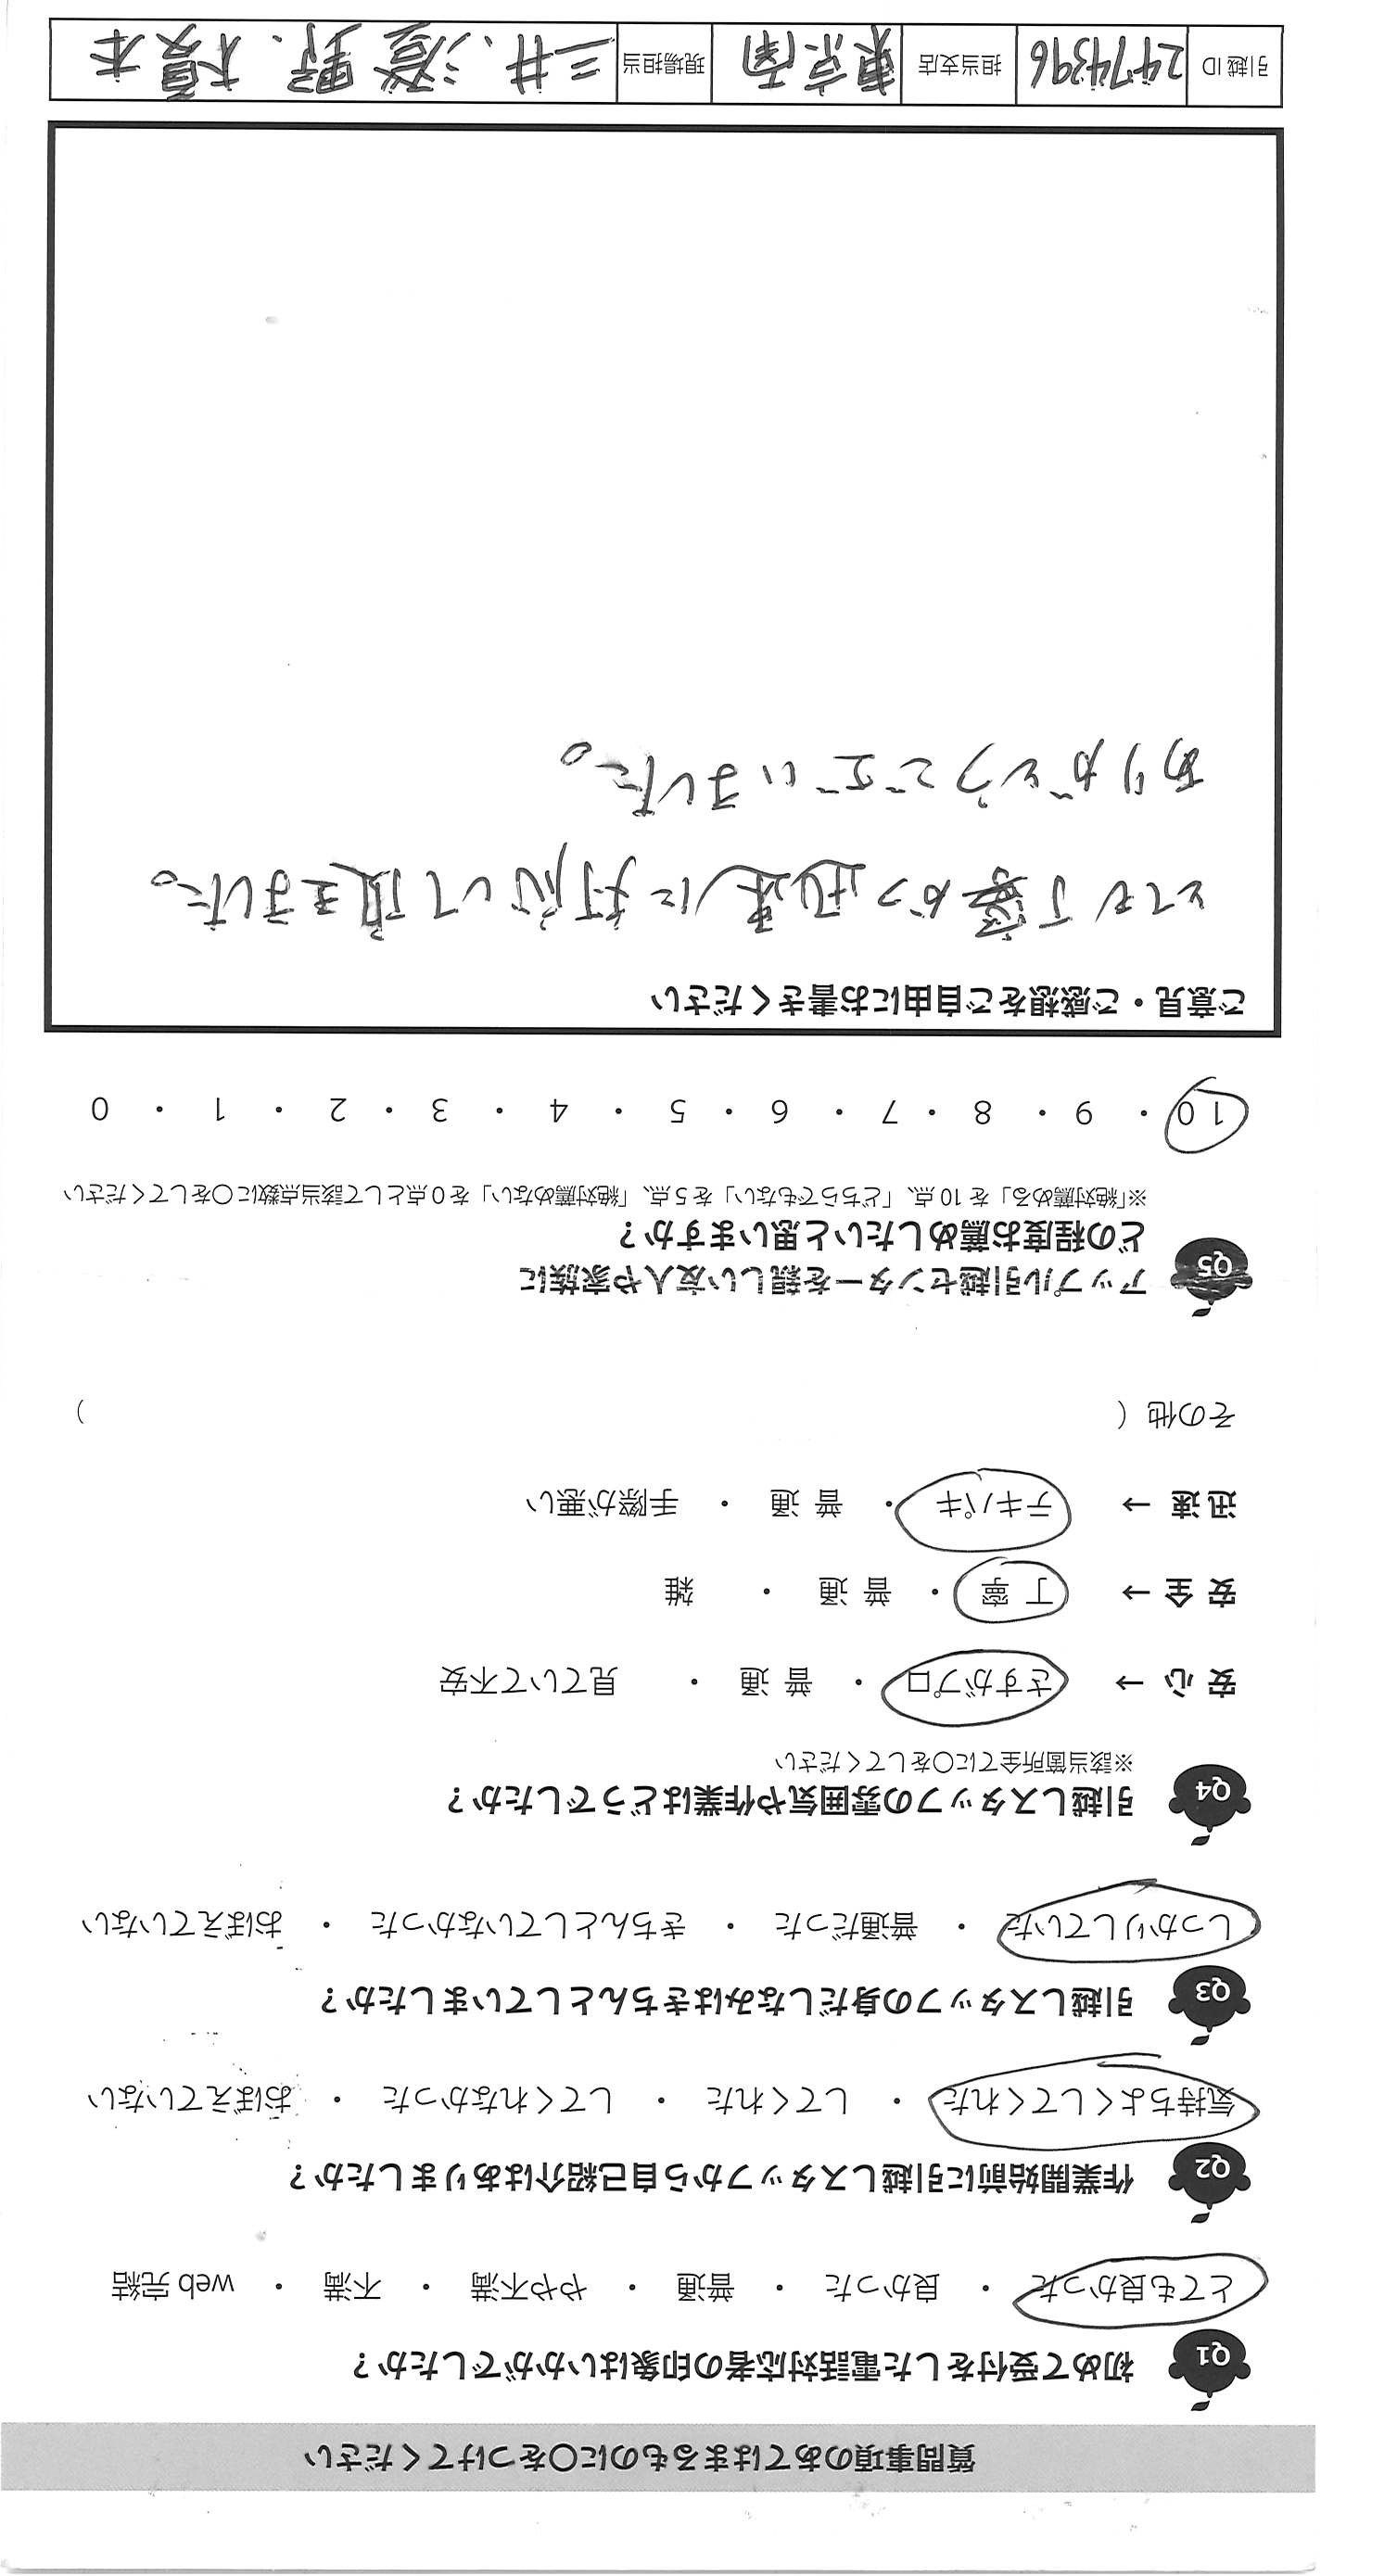 質問事項のあてはまるものに〇をつけてください
Q1 初めて受付をした電話対応者の印象はいかがでしたか？
とても良かった ・ 良かった ・ 普通 ・ やや不満 ・ 不満 ・ web 完結
Q2 作業開始前に引越しスタッフから自己紹介はありましたか？
気持ちよくしてくれた ・ してくれた ・ してくれなかった ・ おぼえていない
Q3 引越しスタッフの身だしなみはきちんとしていましたか？
しっかりしていた ・ 普通だった ・ きちんとしていなかった ・ おぼえていない
Q4 引越しスタッフの雰囲気や作業はどうでしたか？
※該当箇所全てに〇をしてください
安 心 → さすがプロ ・ 普 通 ・ 見ていて不安
安 全 → 丁 寧 ・ 普 通 ・ 雑
迅 速 → テキパキ ・ 普 通 ・ 手際が悪い
その他（ ）
Q5 アップル引越センターを親しい友人や家族に
どの程度お薦めしたいと思いますか？
※「絶対薦める」を 10 点、「どちらでもない」を 5 点、「絶対薦めない」を 0 点として該当点数に〇をしてください
10 ・ 9 ・ 8 ・ 7 ・ 6 ・ 5 ・ 4 ・ 3 ・ 2 ・ 1 ・ 0
ご意見・ご感想をご自由にお書きください
とても丁寧かつ迅速に対応して頂きました。
ありがとうございました。
引越 ID 2474396 担当支店 東京南 現場担当 三井、澄野、榎本